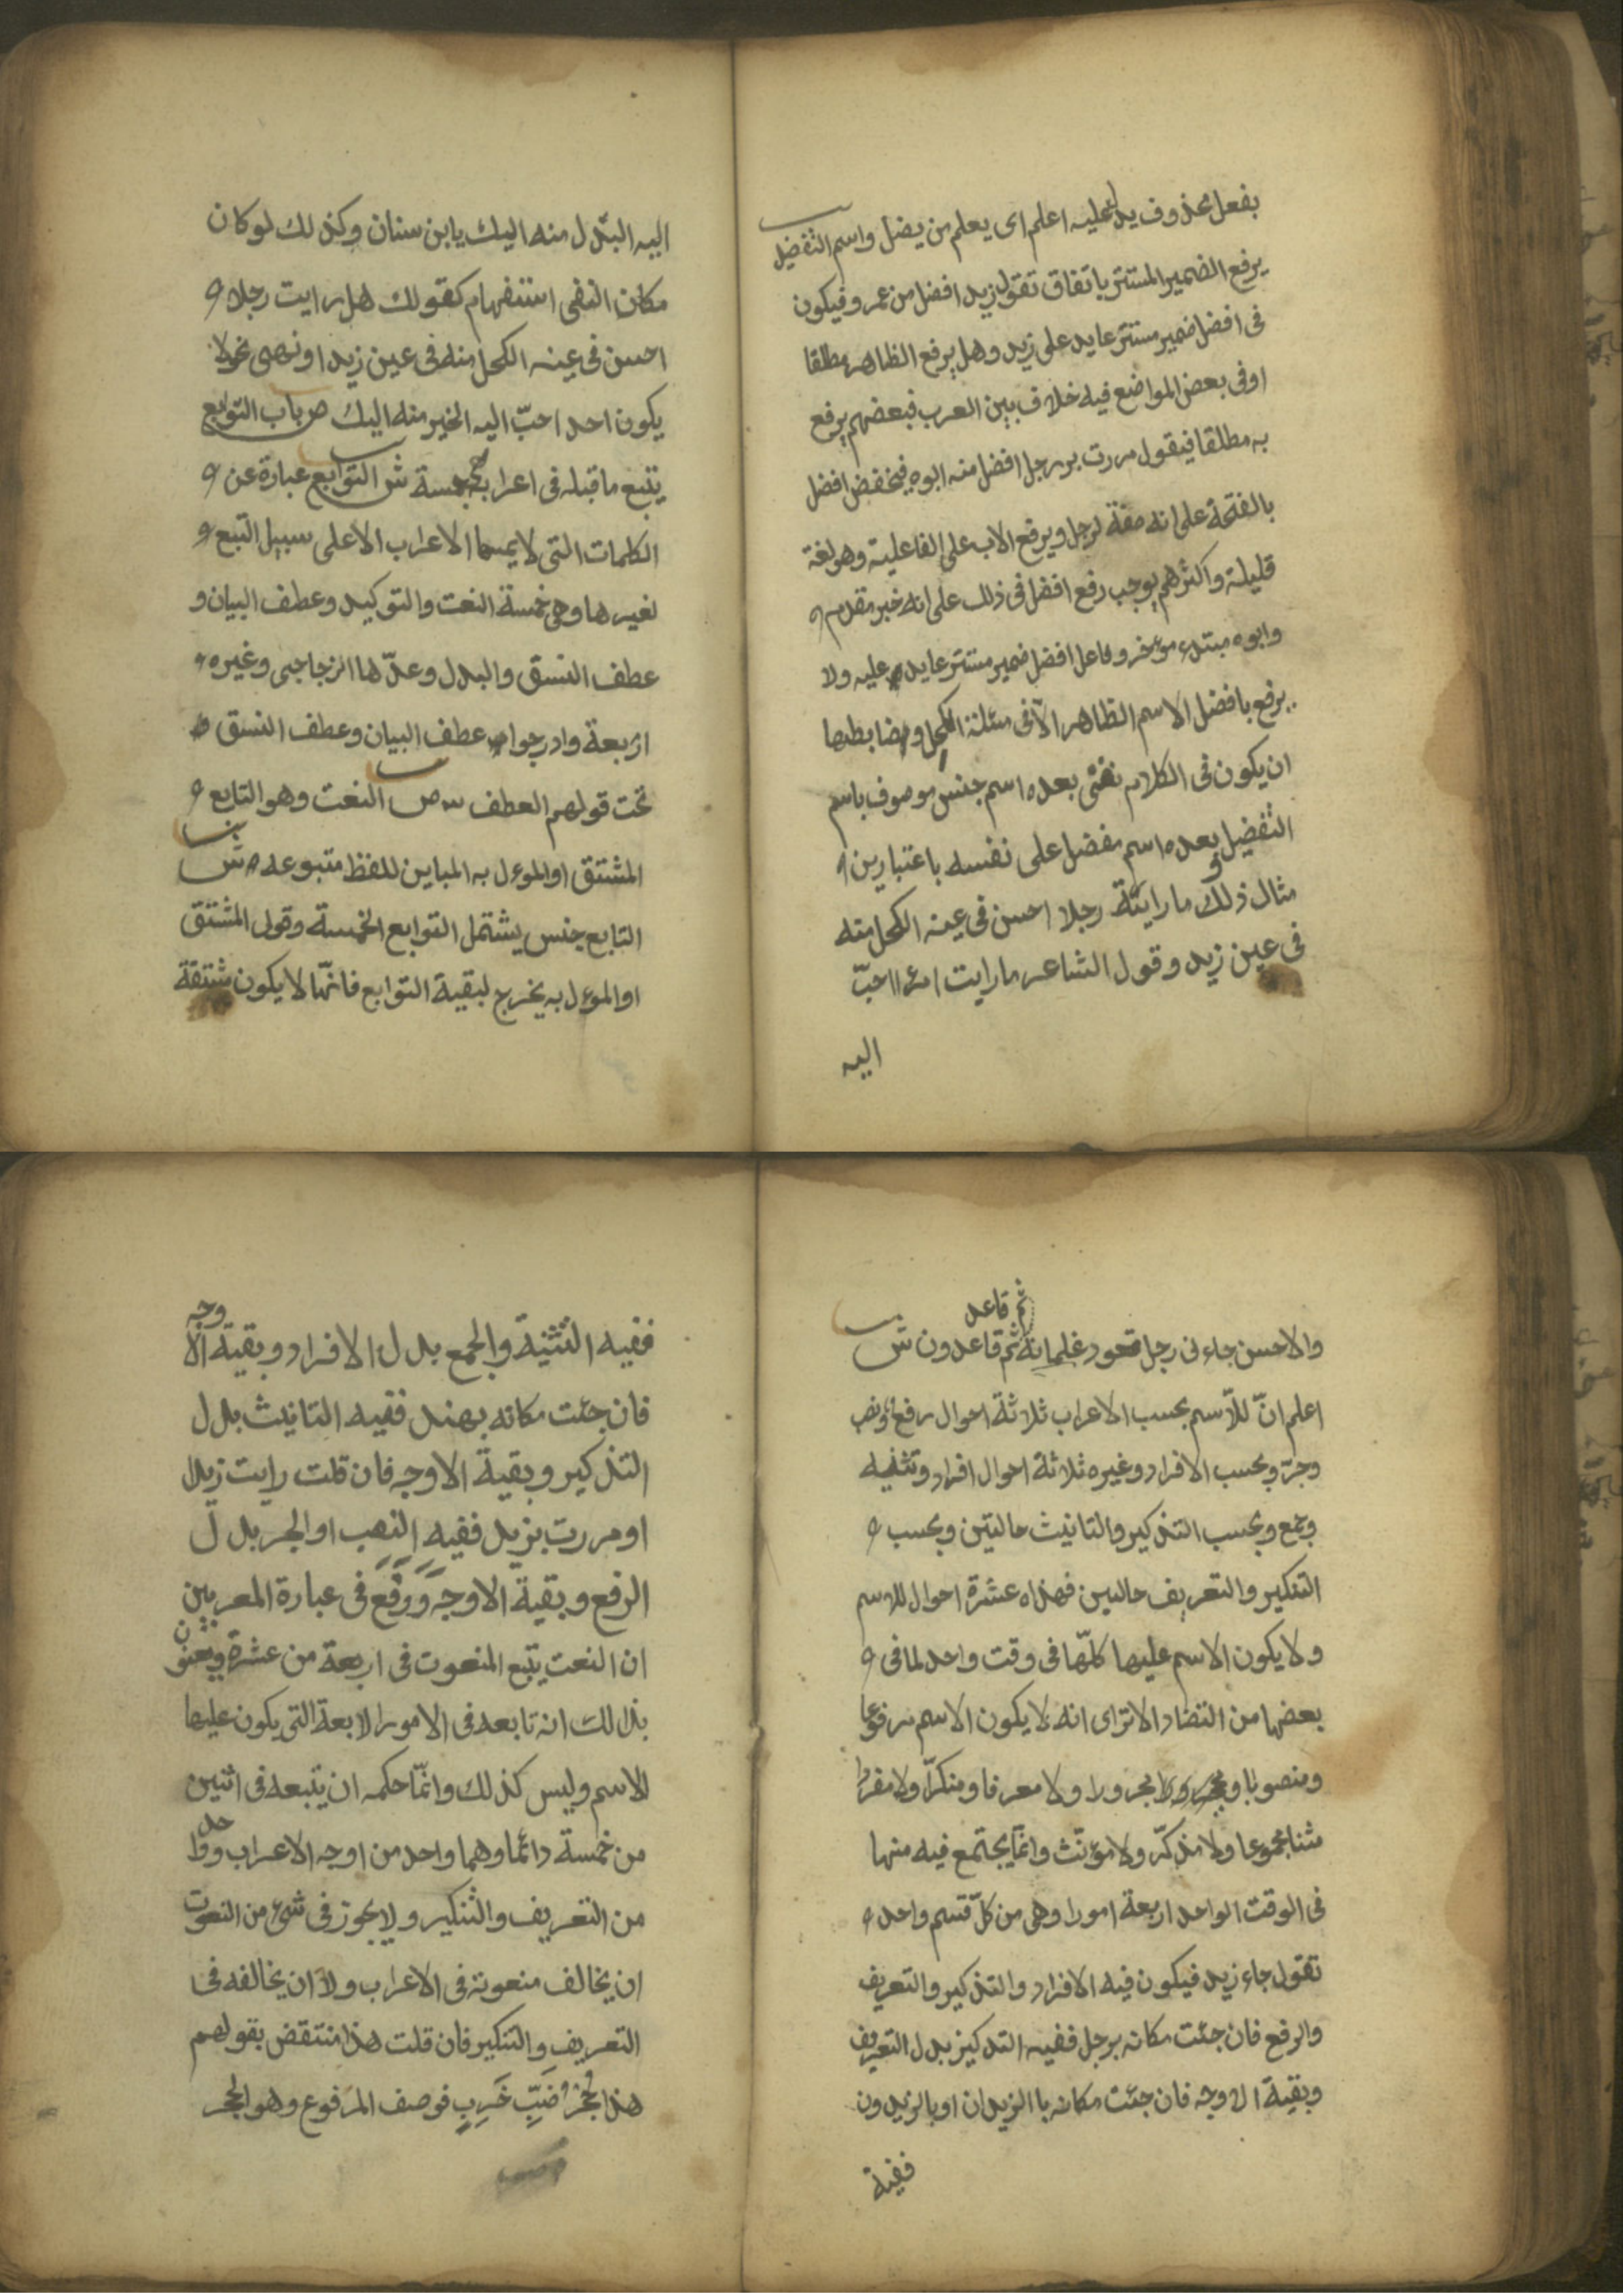 بفعل محذوف يدل عليه اعلم اى يعلم من يضل واسم التفضيل
يرفع الضمير المستتر باتفاق تقول زيد افضل من عمرو فيكون
فى افضل ضمير مستتر عايد على زيد وهل يرفع الظاهر مطلقا
او فى بعض المواضع فيه خلاف بين العرب فبعضهم يرفع
به مطلقا فيقول مررت برجل افضل منه ابوه فيخفض افضل
بالفتحة على انه صفة لرجل ويرفع الاب على الفاعلية وهو لغة
قليلة واكثرهم يوجب رفع افضل فى ذلك على انه خبر مقدم
وابوه مبتدء موءخر وفاعل افضل ضمير مستتر عايد عليه ولا
يرفع بافضل الاسم الظاهر الّا فى مسئلة الكحل وضابطها
ان يكون فى الكلام نفىٌ بعده اسم جنس موصوف باسم
التفضيل بعده اسم مفضل على نفسه باعتبارين
مثال ذلك ما رايت رجلا احسن فى عينه الكحل منه
فى عين زيد وقول الشاعر ما رايت امرءا احبّ
اليه
اليه البذل منه اليك يا ابن سنان وكذلك لو كان
مكان النفى استفهام كقولك هل رايت رجلا
احسن فى عينه الكحل منه فى عين زيد او نهى نحو لا
يكون احد احبّ اليه الخير منه اليك ص باب التوابع
يتبع ما قبله فى اعرابه خمسة ش التوابع عبارة عن
الكلمات التى لا يمسها الاعراب الا على سبيل التبع
لغيرها وهى خمسة النعت والتوكيد وعطف البيان و
عطف النسق والبدل وعدّها الزجاجى وغيره
اربعة وادرجوا عطف البيان وعطف النسق
تحت قولهم العطف ص النعت وهو التابع
المشتق او الموءل به المباين للفظ متبوعه ش
التابع جنس يشتمل التوابع الخمسة وقولى المشتق
او الموءل به يخرج لبقية التوابع فانّها لا يكون مشتقة
ثم قاعد
والاحسن جاءنى رجل قعود غلمانه ثم قاعدون ش
اعلم انّ للاسم بحسب الاعراب ثلاثة احوال رفع ونصب
وجرّ وبحسب الافراد وغيره ثلاثة احوال افراد وتثنيه
وجمع وبحسب التذكير والتانيث حالتين وبحسب
التنكير والتعريف حالتين فهذه عشرة احوال للاسم
ولا يكون الاسم عليها كلّها فى وقت واحد لما فى
بعضها من التضاد الا ترى انه لا يكون الاسم مرفوعا
ومنصوبا ولا مجرورا ولا معرفا ومنكّرا ولا مفردا
مثنا مجموعا ولا مذكّر ولا مؤنّث وانّما يجتمع فيه منها
فى الوقت الواحد اربعة امور وهى من كلّ قسم واحد
تقول جاء زيد فيكون فيه الافراد والتذكير والتعريف
والرفع فان جئت مكانه برجل ففيه التنكير بدل التعريف
وبقية الاوجه فان جئت مكانه باالزيدان او بالزيدون
ففيه
ففيه التثنية والجمع بدل الافراد وبقية الاوجه
فان جئت مكانه بهند ففيه التانيث بدل
التذكير وبقية الاوجه فان قلت رايت زيدا
او مررت بزيد ففيه النصب او الجر بدل
الرفع وبقية الاوجه ووقع فى عبارة المعربين
ان النعت يتبع المنعوت فى اربعة من عشرة ويعنون
بذلك انه تابعه فى الامور الاربعة التى يكون عليها
الاسم وليس كذلك وانّما حكمه ان يتبعه فى اثنين
من خمسة دائما وهما واحد من اوجه الاعراب وواحد
من التعريف والتنكير ولا يجوز فى شىء من النعوت
ان يخالف منعوته فى الاعراب ولا ان يخالفه فى
التعريف والتنكير فان قلت هذا منتقض بقولهم
هذا جحرُ ضبٍّ خَرِبٍ فوصف المرفوع وهو الجحر